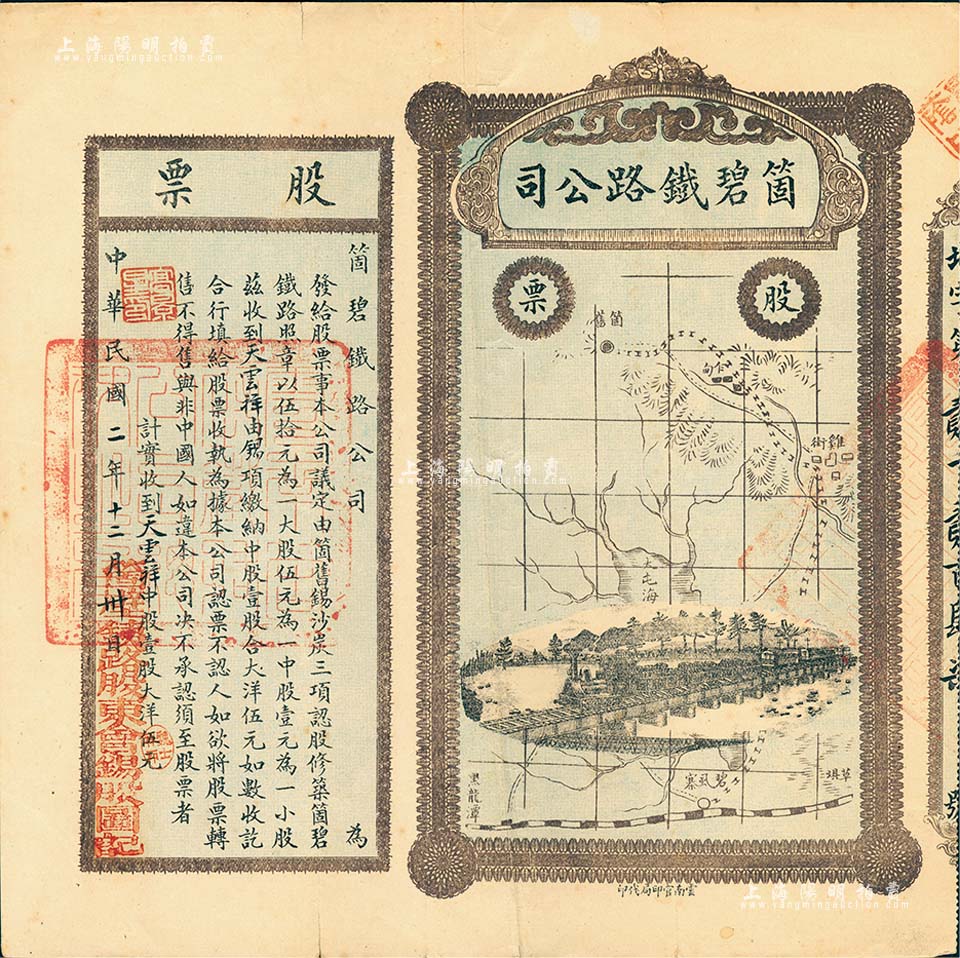 上海陽明拍賣
www.yangmingauction.com
箇碧鐵路公司
股票
箇舊
雞街
大屯海
碧色寨
草埧
黑龍潭
雲南官印局代印
股票
箇碧鐵路公司為
發給股票事本公司議定由箇舊錫沙炭三項認股修築箇碧
鐵路照章以伍拾元為一大股伍元為一中股壹元為一小股
茲收到天雲祥由錫項繳納中股壹股合大洋伍元如數收訖
合行填給股票收執為據本公司認票不認人如欲將股票轉
售不得售與非中國人如違本公司决不承認須至股票者
計實收到天雲祥中股壹股大洋伍元
中華民國二年十二月卅日
上海陽明拍賣
www.yangmingauction.com
上海陽明拍賣
www.yangmingauction.com